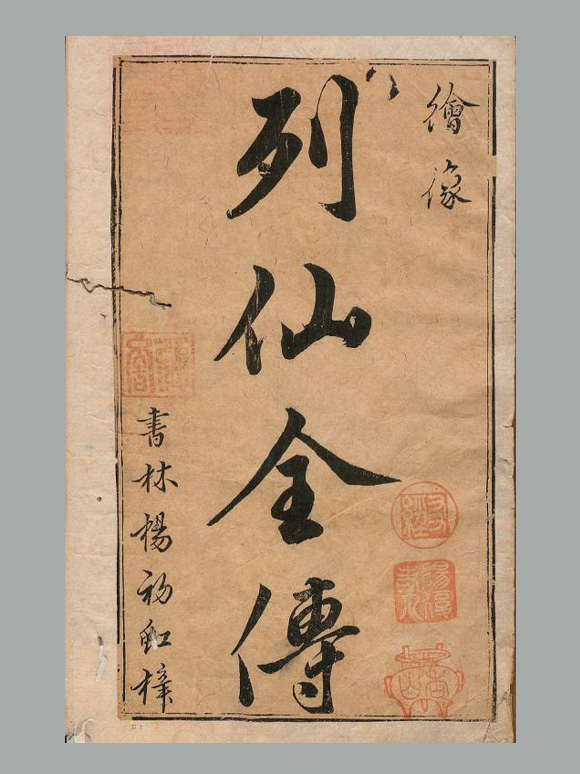 繪像
列仙全傳
書林楊初虹梓